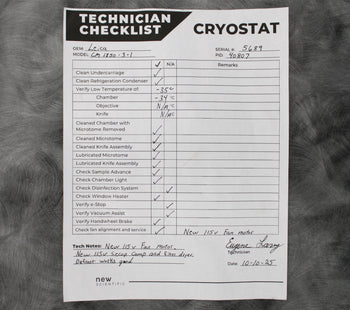 TECHNICIAN CHECKLIST
CRYOSTAT
OEM: Leica SERIAL #: 5689
MODEL: CM 1850-3-1 PID: 40807
✓ N/A Remarks
Clean Undercarriage ✓
Clean Refrigeration Condenser ✓
Verify Low Temperature of: -35 c
Chamber -34 c
Objective N/A c
Knife N/A c
Cleaned Chamber with
Microtome Removed ✓
Cleaned Microtome ✓
Cleaned Knife Assembly ✓
Lubricated Microtome ✓
Lubricated Knife Assembly ✓
Check Sample Advance ✓
Check Chamber Light ✓
Check Disinfection System ✓
Check Window Heater ✓
Verify e-Stop ✓
Verify Vacuum Assist ✓
Verify Handwheel Brake ✓
Check fan alignment and service ✓ New 115v Fan motor
Tech Notes: New 115v Fan Motor.
New 115v Scrap Lamp and filter dryer
Defrost works good
Eugene
Technician
Date: 10-10-25
new
SCIENTIFIC